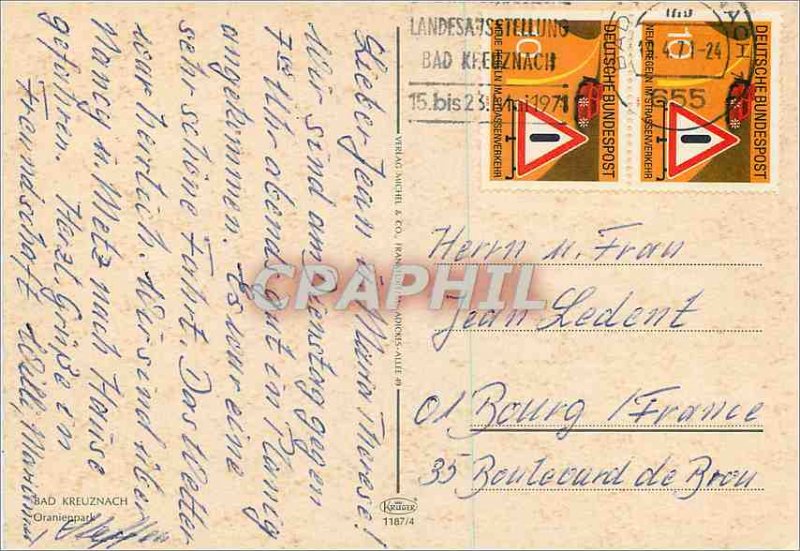 LANDESAUSSTELLUNG
BAD KREUZNACH
15. bis 23. Mai 1971
4.71-24
655
10
DEUTSCHE BUNDESPOST
NEUE REGELN IM STRASSENVERKEHR
10
DEUTSCHE BUNDESPOST
NEUE REGELN IM STRASSENVERKEHR
Lieber Jean u. Maria Therese!
Wir sind am Dienstag gegen
7 Uhr abends gut in Planig
angekommen. Es war eine
sehr schöne Fahrt. Das Wetter
war herlich. Wir sind über
Nancy u. Metz nach Hause
gefahren. Herzl. Grüße in
Freundschaft Willi,
VERLAG MICHEL & CO., FRANKFURT/M., ADICKES-ALLEE 49
Herrn u. Frau
Jean Ledent
01 Bourg /France
35 Boulevard de Brou
BAD KREUZNACH
Oranienpark
KRÜGER
1187/4
CPAPHIL